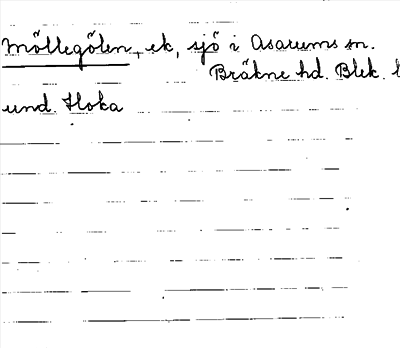 Möllegölen, ek, sjö i Asarums sn.
Bräkne hd. Blek.
und. Hoka